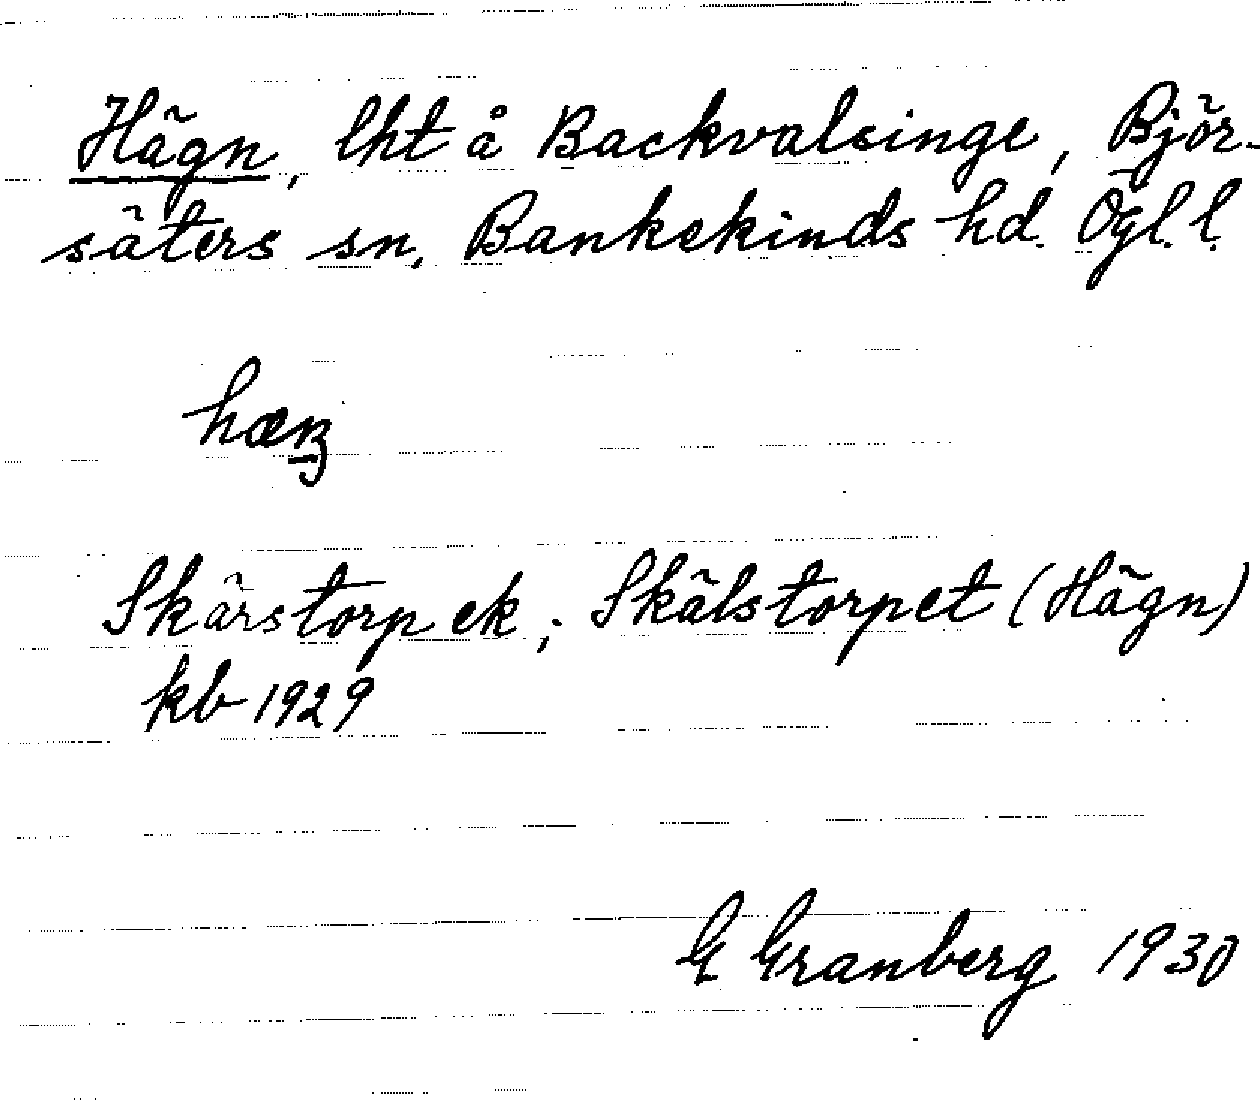 Hägn, lht å Backvalsinge, Björ-
säters sn, Bankekinds hd. Ögl. l.
Skärstorp ek; Skälstorpet (Hägn)
kb 1929
G Granberg 1930